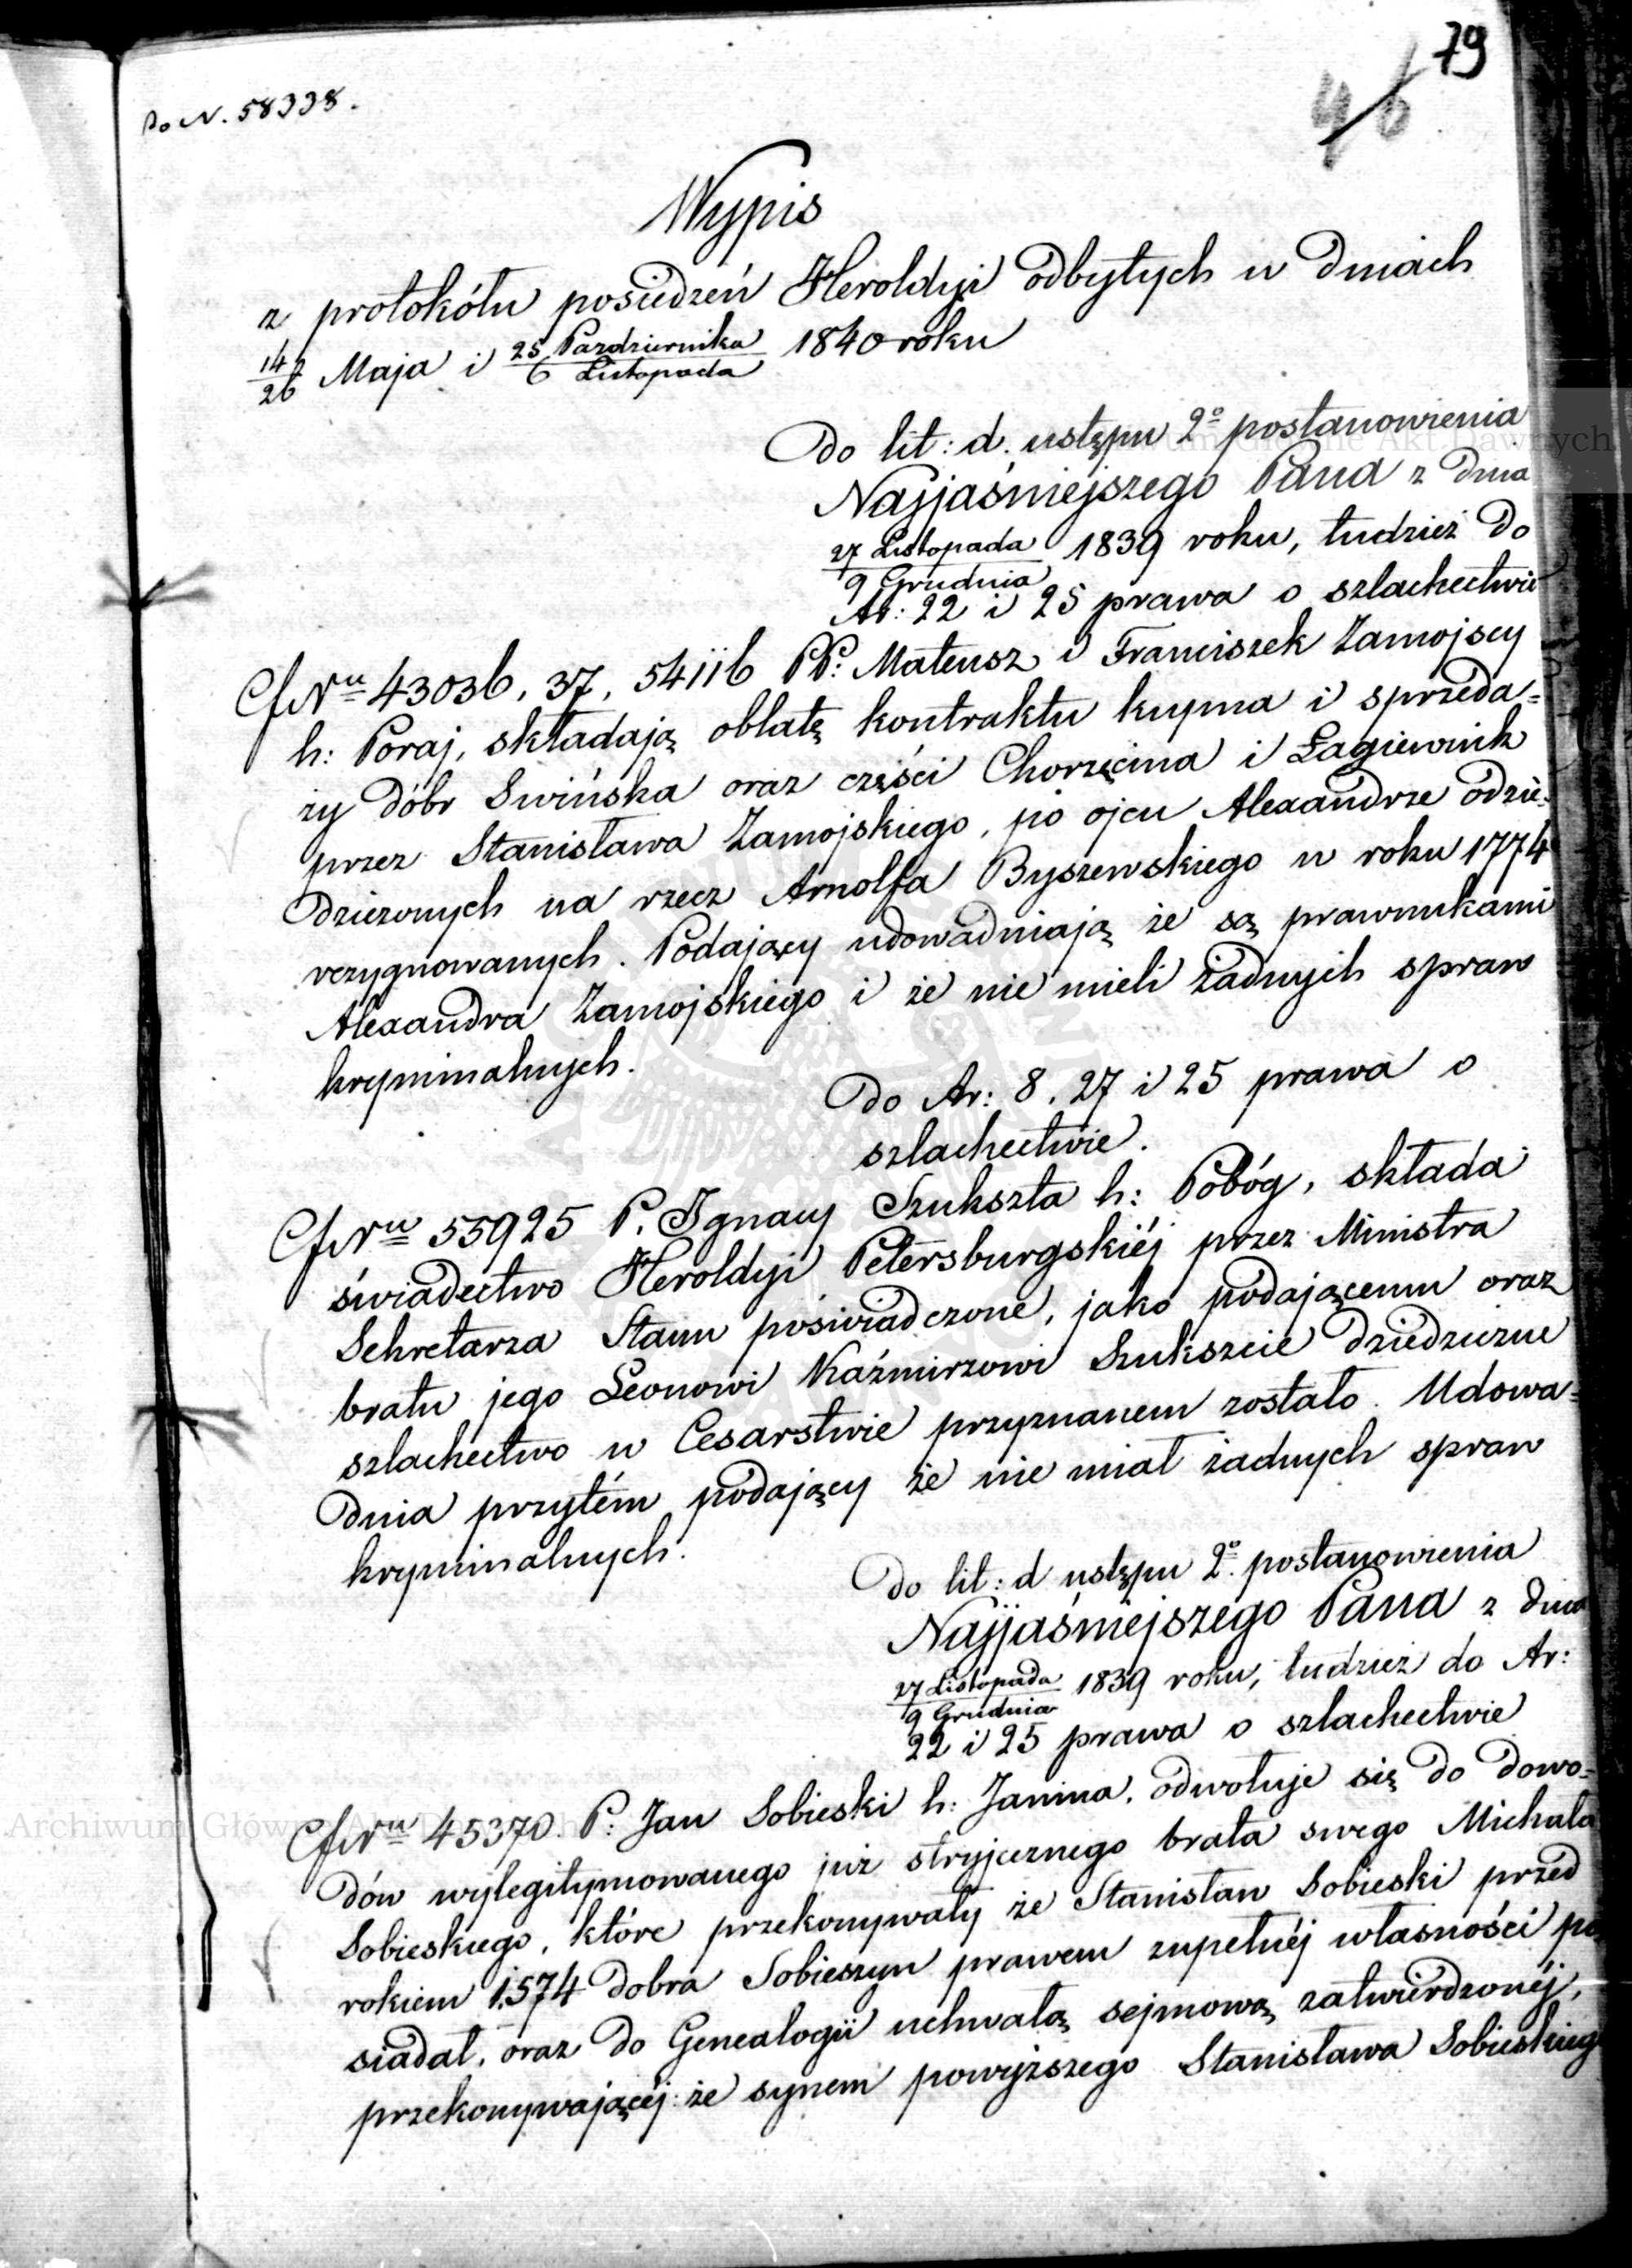 79
46
Do N. 58338.
Wypis
z protokółu posiedzeń Heroldyi odbytych w dniach
14/26 Maja i 25 Pazdziernika/6 Listopada 1840 roku
Do lit: d. ustępu 2º postanowienia
Najjaśniejszego Pana z dnia
27 Listopada/9 Grudnia 1839 roku, tudzież do
Ar: 22 i 25 prawa o szlachectwie
Nru 43036, 37, 54116 PP: Mateusz i Franciszek Zamojscy
h: Poraj, składają oblatę kontraktu kupna i sprzeda=
ży dóbr Swińska oraz części Chorzęcina i Łagiewnik
przez Stanisława Zamojskiego, po ojcu Alexandrze odzie=
dziczonych na rzecz Arnolfa Byszewskiego w roku 1774
rezygnowanych. Podający udowadniają że są prawnukami
Alexandra Zamojskiego i że nie mieli żadnych spraw
kryminalnych.
Do Ar: 8, 27 i 25 prawa o
szlachectwie.
Nru 55925 P. Ignacy Szukszta h: Pobóg, składa
świadectwo Heroldyi Petersburgskiéj przez Ministra
Sekretarza Stanu poświadczone, jako podającemu oraz
bratu jego Leonowi Kaźmirzowi Szukszcie dziedziczne
szlachectwo w Cesarstwie przyznanem zostało. Udowa=
dnia przytém podający że nie miał żadnych spraw
kryminalnych.
Do lit: d ustępu 2º postanowienia
Najjaśniejszego Pana z dnia
27 Listopada/9 Grudnia 1839 roku, tudzież do Ar:
22 i 25 prawa o szlachectwie
Nru 45370. P: Jan Sobieski h: Janina, odwołuje się do dowo=
dów wylegitymowanego już stryjecznego brata swego Michała
Sobieskiego, które przekonywały że Stanisław Sobieski przed
rokiem 1574 dobra Sobieszyn prawem zupełnéj własności po
siadał, oraz do Genealogii uchwałą sejmową zatwierdzonéj,
przekonywającéj: że synem powyższego Stanisława Sobieskiego
Archiwum Główne Akt Dawnych